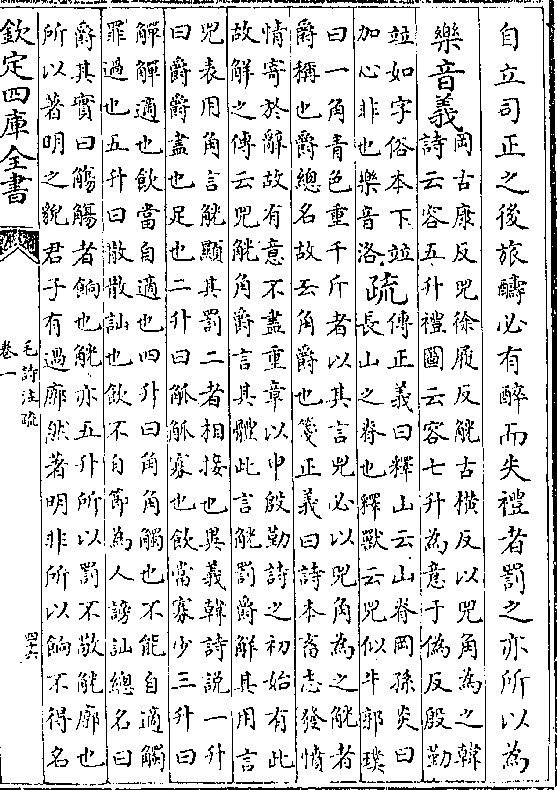 自立司正之後旅醻必有醉而失禮者罰之亦所以為
樂音義
岡古康反兕徐履反觥古橫反以兕角為之韓
詩云容五升禮圖云容七升為意于偽反殷勤
竝如字俗本下竝
加心非也樂音洛
疏
傳正義曰釋山云山脊岡孫炎曰
長山之脊也釋獸云兕似牛郭璞
曰一角青色重千斤者以其言兕必以兕角為之觥者
爵稱也爵總名故云角爵也箋正義曰詩本畜志發憤
情寄於辭故有意不盡重章以申殷勤詩之初始有此
故解之傳云兕觥角爵言其體此言觥罰爵解其用言
兕表用角言觥顯其罰二者相接也異義韓詩說一升
曰爵爵盡也足也二升曰觚觚寡也飲當寡少三升曰
觶觶適也飲當自適也四升曰角角觸也不能自適觸
罪過也五升曰散散訕也飲不自節為人謗訕總名曰
爵其實曰觴觴者餉也觥亦五升所以罰不敬觥廓也
所以著明之貌君子有過廓然著明非所以餉不得名
欽定四庫全書
毛詩注疏
卷一
四六